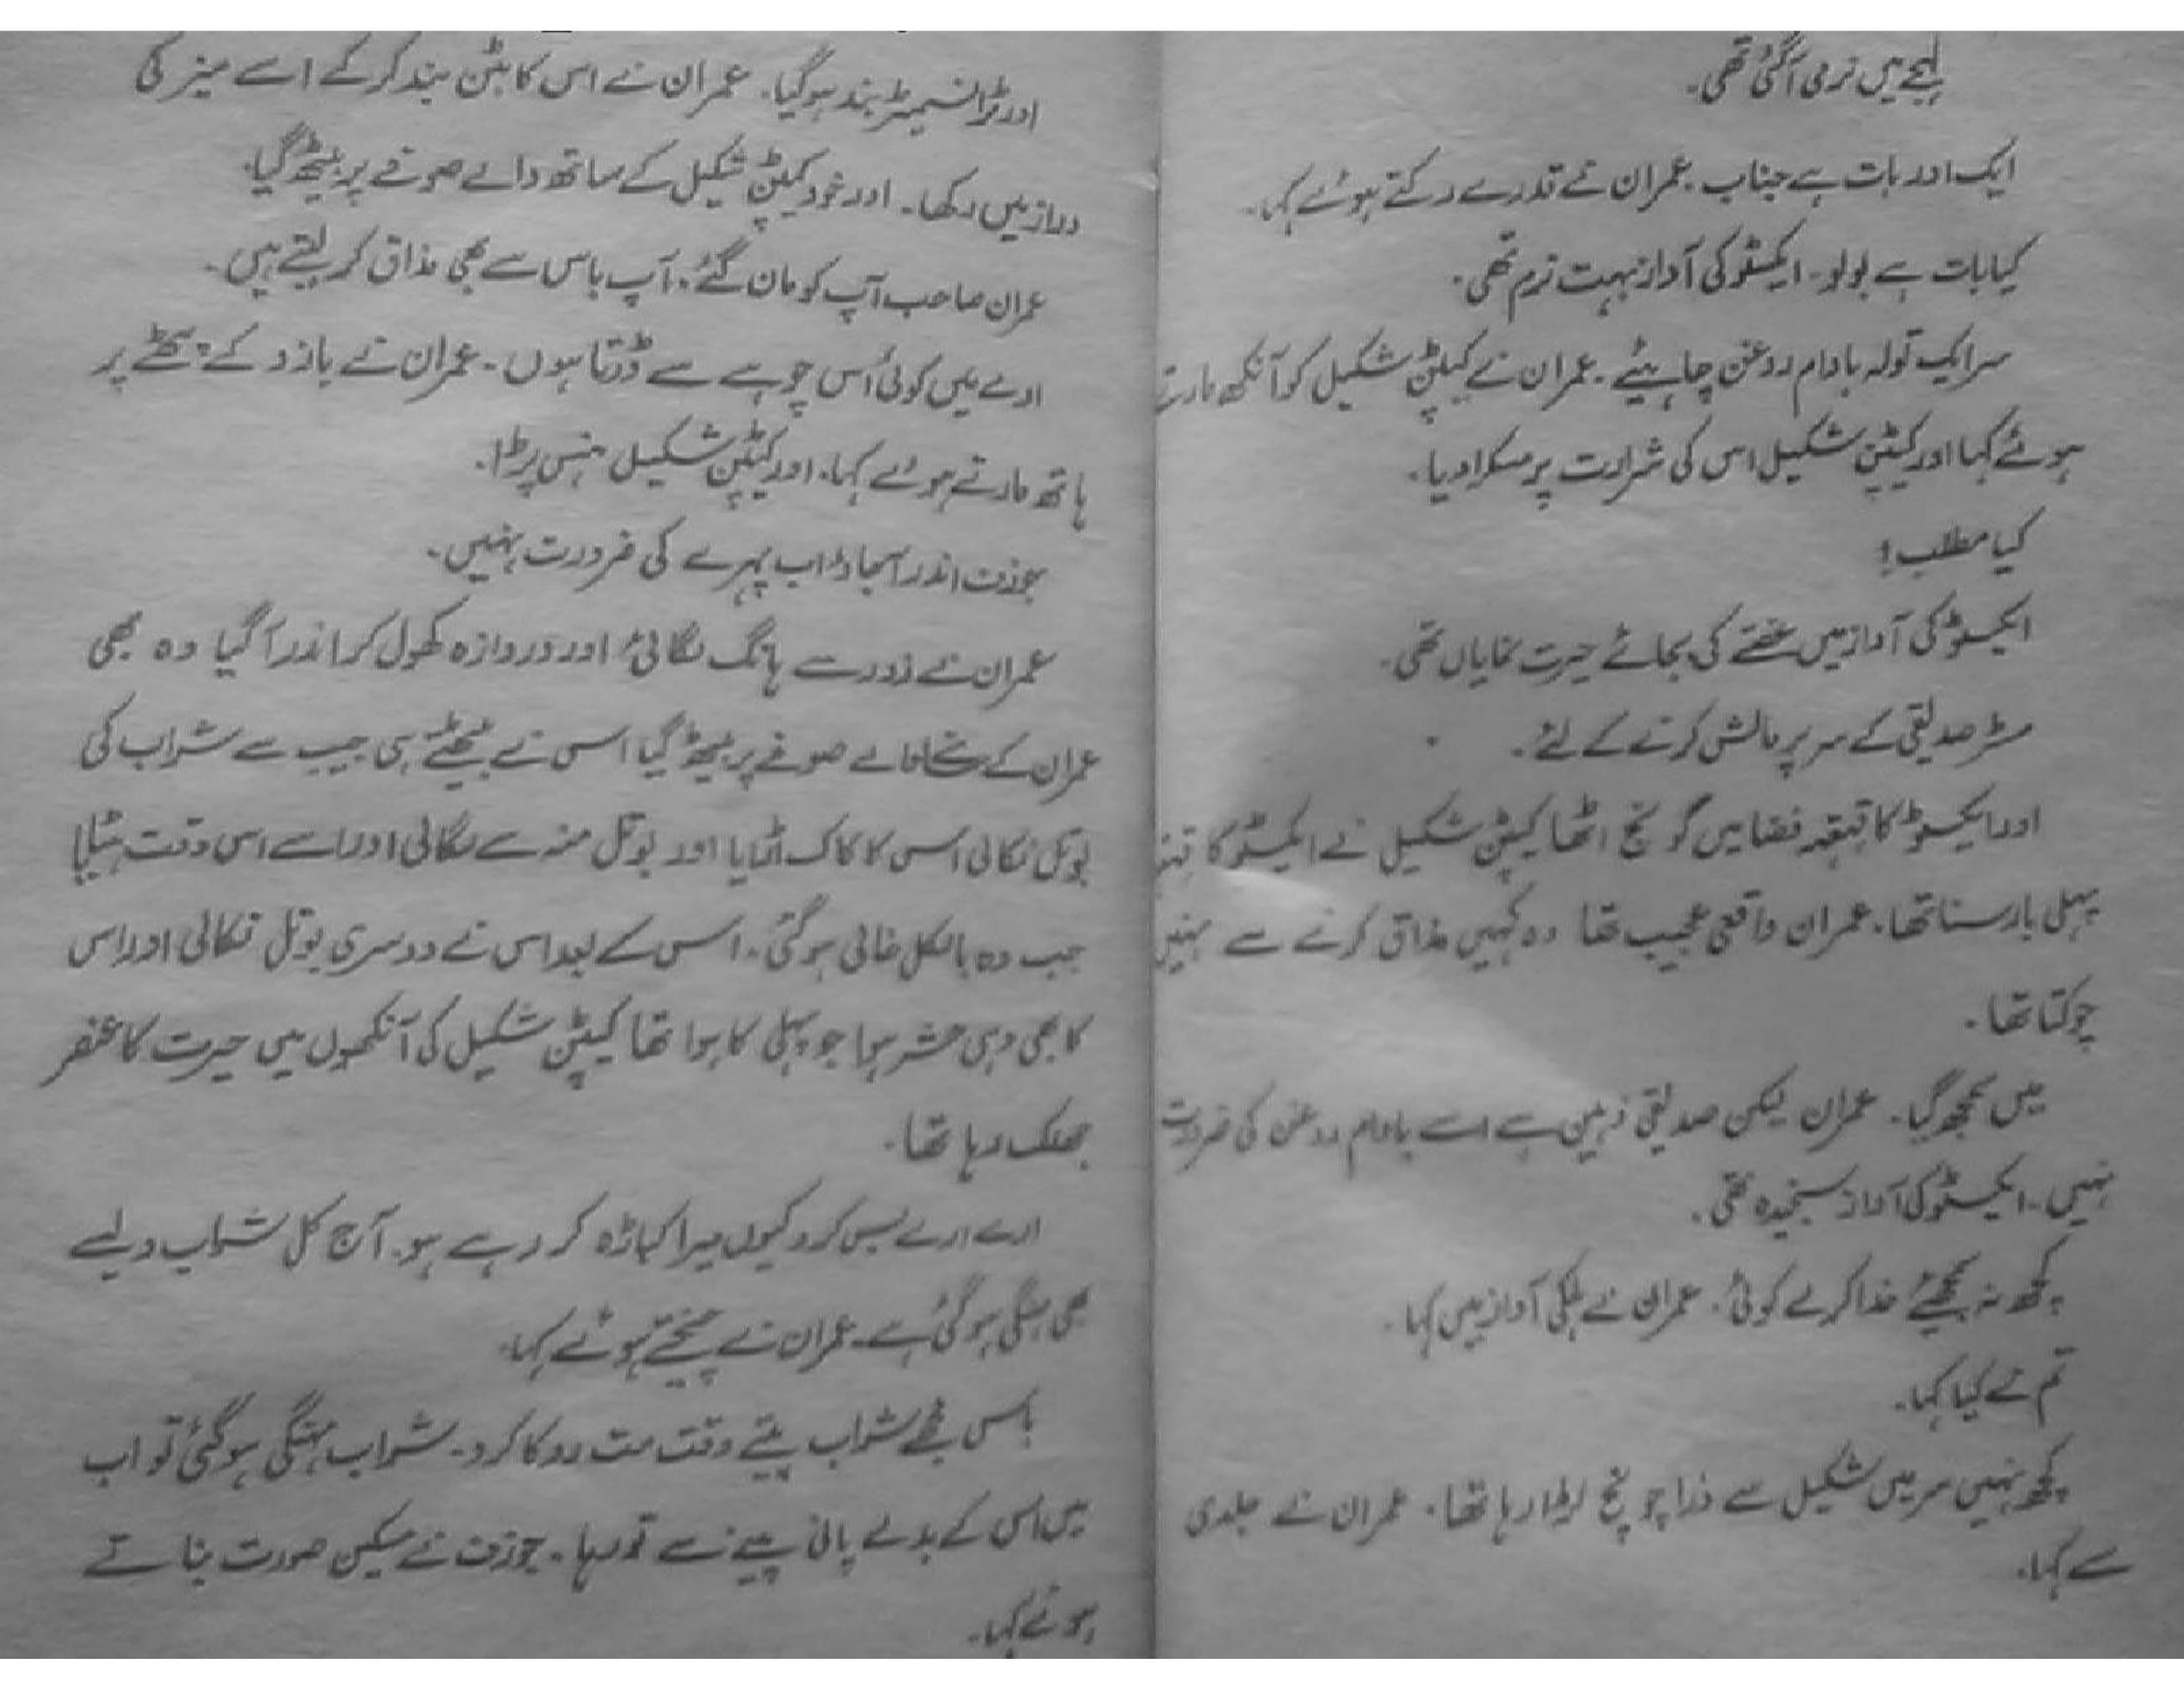 لہجے میں نرمی آگئی تھی۔
ایک اور بات ہے جناب۔ عمران نے قدرے رکتے ہوئے کہا۔
کیا بات ہے بولو۔ ایکسٹو کی آواز بہت نرم تھی۔
سر ایک تولہ بادام روغن چاہیئے۔ عمران نے کیپٹن شکیل کو آنکھ مارتے
ہوئے کہا اور کیپٹن شکیل اس کی شرارت پر مسکرا دیا۔
کیا مطلب!
ایکسٹو کی آواز میں غصے کی بجائے حیرت نمایاں تھی۔
مسٹر صدیقی کے سر پر مالش کرنے کے لئے۔
اور ایکسٹو کا قہقہہ فضا میں گونج اٹھا کیپٹن شکیل نے ایکسٹو کا
پہلی بار سنا تھا۔ عمران واقعی عجیب تھا وہ کہیں مذاق کرنے سے نہیں
چوکتا تھا۔
میں سمجھ گیا۔ عمران لیکن صدیقی ذہین ہے اسے بادام روغن کی ضرورت
نہیں۔ ایکسٹو کی آواز سنجیدہ تھی۔
کچھ نہ سمجھئے خدا کرے کوئی۔ عمران نے ہلکی آواز میں کہا۔
تم نے کیا کہا۔
کچھ نہیں سر میں شکیل سے ذرا چونچ لڑا رہا تھا۔ عمران نے جلدی
سے کہا۔
اور ٹرانسمیٹر بند ہوگیا۔ عمران نے اس کا بٹن بند کر کے اسے میز کی
دراز میں رکھا۔ اور خود کیپٹن شکیل کے ساتھ والے صوفے پر بیٹھ گیا۔
عمران صاحب آپ کو مان گئے۔ آپ باس سے بھی مذاق کر لیتے ہیں۔
ارے میں کوئی اُس چوہے سے ڈرتا ہوں۔ عمران نے بازو کے پر
ہاتھ مارتے ہوئے کہا۔ اور کیپٹن شکیل ہنس پڑا۔
جوزف اندر آجاؤ اب پہرے کی ضرورت نہیں۔
عمران نے زور سے ہانگ لگائی اور دروازہ کھول کر اندر آگیا وہ بھی
عمران کے صوفے پر بیٹھ گیا اس نے بیٹھتے ہی جیب سے شراب کی
بوتل نکالی اس کا کاک اڑایا اور بوتل منہ سے لگائی اور اسے اس وقت ہٹایا
جب وہ بالکل خالی ہوگئی۔ اس کے بعد اس نے دوسری بوتل نکالی اور اس
کا بھی وہی حشر ہوا جو پہلی کا ہوا تھا کیپٹن شکیل کی آنکھوں میں حیرت کا عنصر
جھلک رہا تھا۔
ارے ارے بس کرو کیوں میرا کباڑہ کر رہے ہو۔ آج کل شراب ویسے
بھی مہنگی ہوگئی ہے۔ عمران نے چیختے ہوئے کہا۔
باس مجھے شراب پیتے وقت مت روکا کرو۔ شراب مہنگی ہوگئی تو اب
میں اس کے بدلے پانی پینے سے تو رہا۔ جوزف نے مسکین صورت بناتے
ہوئے کہا۔